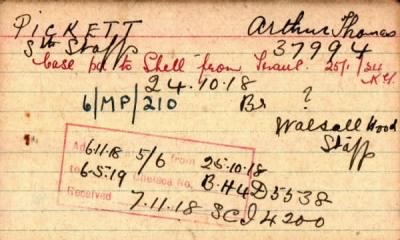 PICKETT Arthur Thomas
Sth Staff 37994
Case pa. to Shell from 25/1/34
24.10.18
6/MP/210 Br ?
Walsall Wood
Staff
6.11.18 5/6 from 25.10.18
to 6.5.19 Chelsea No. B.H4D5538
Received 7.11.18 SCI 4200